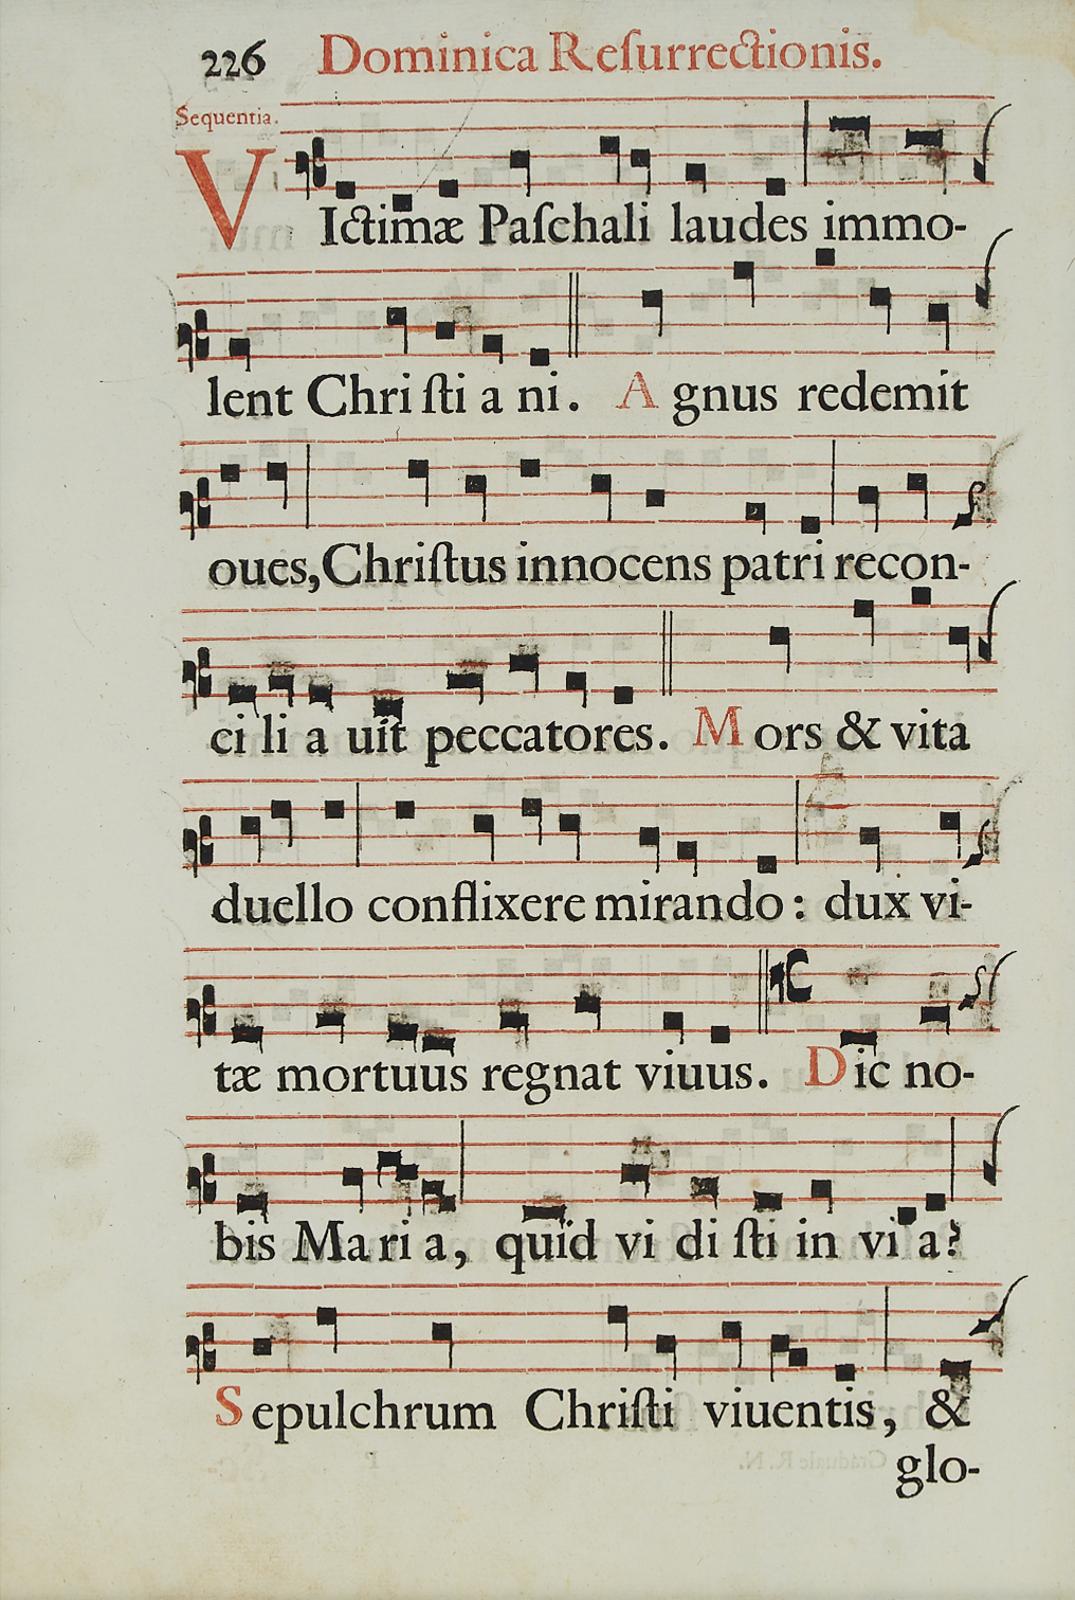 226 Dominica Reſurrectionis.
Sequentia.
VIctimæ Paſchali laudes immo-
lent Chri ſti a ni. A gnus redemit
oues, Chriſtus innocens patri recon-
ci li a uit peccatores. M ors & vita
duello conflixere mirando: dux vi-
tæ mortuus regnat viuus. Dic no-
bis Ma ri a, quid vi di ſti in vi a?
S epulchrum Chriſti viuentis, &
glo-